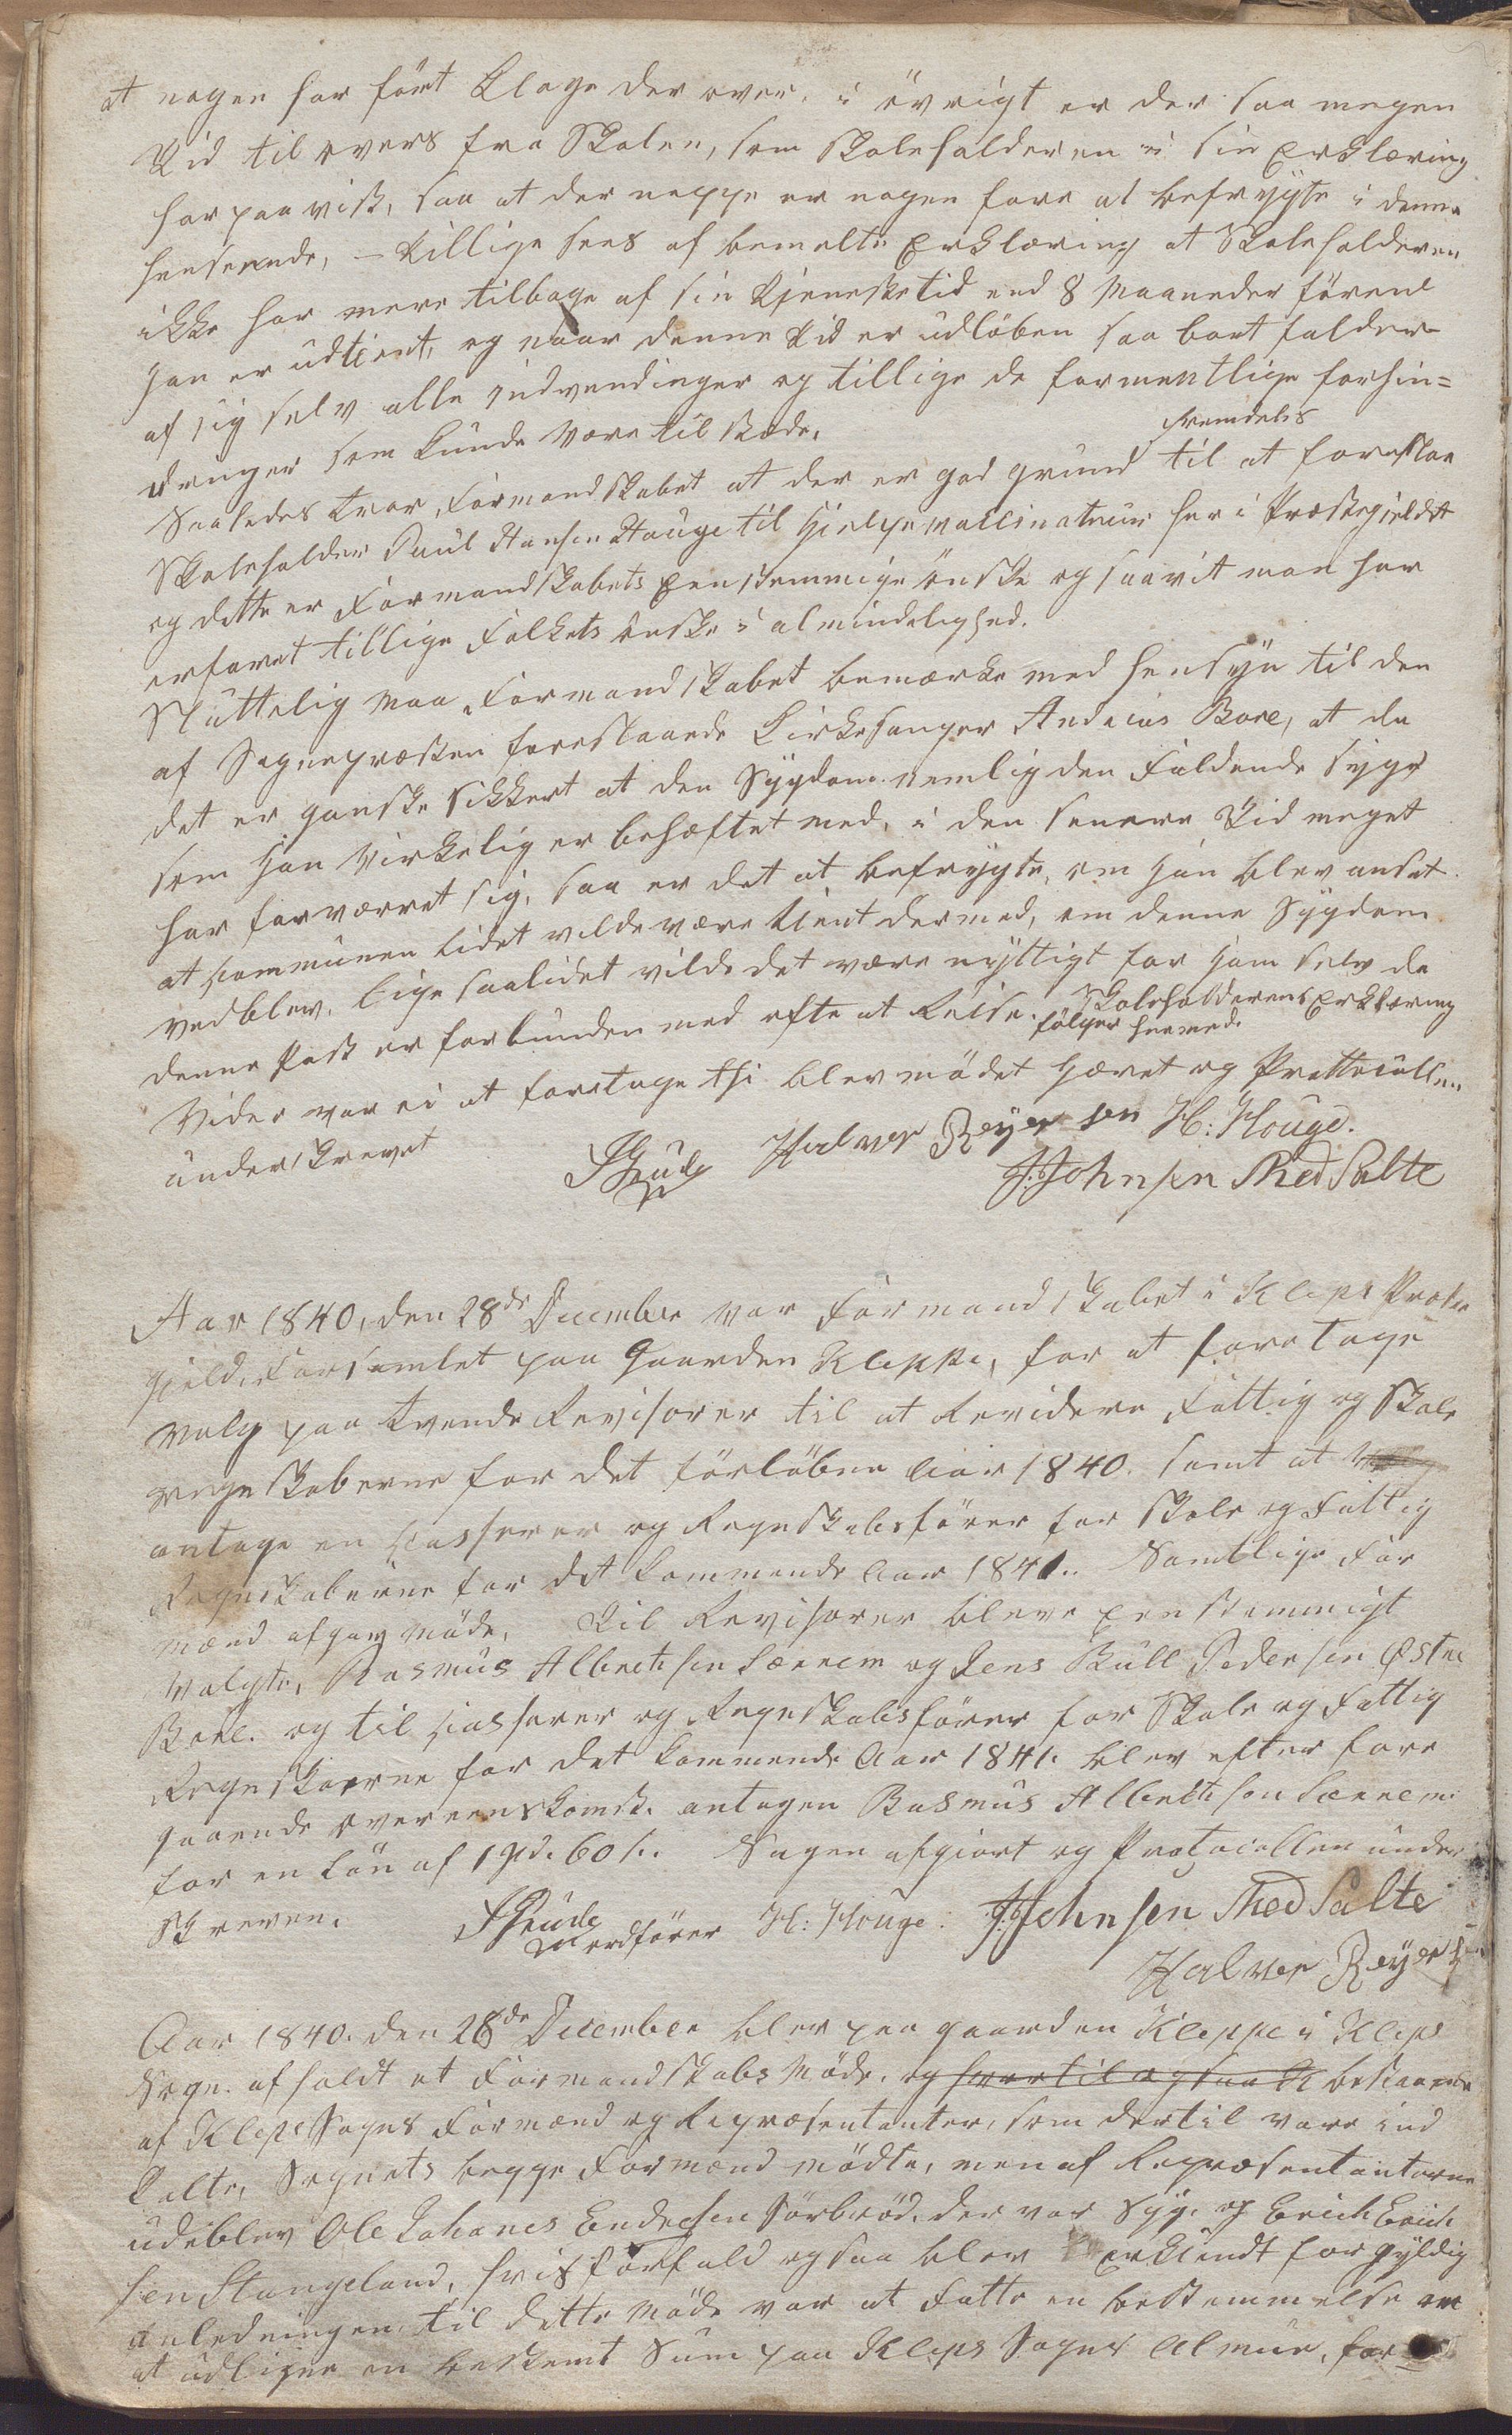 at nogen har ført Klage der over. i øvrigt er der saa megen
Tid til overs fra Skolen, som Skoleholderen i sin Erklæring
har paa vist, saa at der neppe er nogen fare at befrygte i denne
henseende, – tillige sees af bemelte Erklæring at Skoleholderen
ikke har mere tilbage af sin Tjenestetid end 8 Maaneder førend
han er udtient, og naar denne Tid er udløben saa bort falder
af sig selv alle Indvendinger og tillige de formentlige forhin=
dringer som kunde være til stæde.
Saaledes troer Formandskabet at der er god grund fremdeles til at foreslaa
Skoleholder Poul Hansen Hauge til Hielpevaccinateur her i Præstegieldet
og dette er Formandskabets Eenstemmige ønske og saavit man har
erfaret tillige Folkets ønske i almindelighed.
Sluttelig maa Formandskabet bemærke med hensyn til den
af Sognepræsten foreslaaede Kirkesanger Andreas Bore, at da
det er ganske sikkert at den Sygdom nemlig den Faldende syge
som han Virkelig er behæftet med, i den senere Tid meget
har forværret sig, saa er det at befrygte, om han blev ansat
at Communen lidet vilde være tient dermed, om denne Sygdom
vedblev. lige saalidet vilde det være nyttigt for ham selv da
denne Post er forbunden med ofte at Reise. Skoleholderens Erklæring
følger hermed.
Vider var ei at foretage thi blev mødet hævet og Prottocullen
underskrevet
Halver Reyersen H: Houge.
J. Johnsen Thed Salte
Aar 1840, den 28de December var Formandskabet i Klips Præste
gield, Forsamlet paa Gaarden Kleppe, for at foretage
valg paa tvende Revisorer til at Revidere Fattig og Skole
regnskaberne for det forløbne Aar 1840. samt at
antage en Casserer og Regnskabsfører for Skole og Fattig
Regnskaberne for det kommende Aar 1841. Samtlige For
mænd afgav møde. Til Revisorer bleve Eenstemmigt
valgte, Rasmus Albretsen Særeim og Jens Bull Pedersen Østre
Bore. og til Casserer og Regnskabsfører for Skole og Fattig
Regnskaerne for det kommende Aar 1841. blev efter fore
gaaende overeenskomst. antagen Rasmus Albretsen Særeim.
for en Løn af 1 Spd. 60 s. Sagen afgiort og Protocollen under
skreven.
Ordfører H: Houge. J. Johnsen Thed Salte
Halver Reyers
Aar 1840. den 28de December blev paa gaarden Kleppe i Klips
Sogn. afholdt et Formandskabs Møde. og hvortil ogsaa bestaaende
af Klips Sogns Formænd og Repræsentanter, som dertil vare ind
kalte, Sognets begge Formænd mødte, men af Repræsentanterne
udeblev Ole Johanes Endresen Sørbrød. der var Syg. og Erich Erich
sen Stangeland, hvis forfald ogsaa blev erkiendt for gyldig
Anledningen til dette møde var at Fatte en bestemmelse om
at udligne en bestemt Sum paa Klips Sogns Almue, for